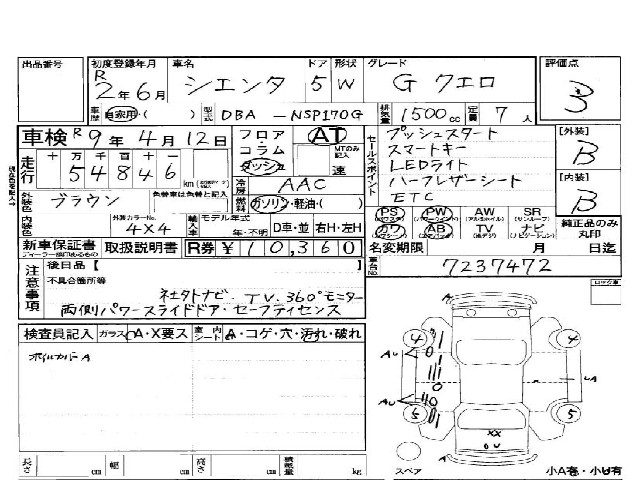 出品番号
初度登録年月 車名 ドア 形状 グレード 評価点
R2年6月 シエンタ 5 W G クエロ 3
車歴 自家用・( ) 型式 DBA - NSP170G 排気量 1500cc 定員 7人
車検 R9年4月12日
フロア コラム ダッシュ
AT MTのみ記入 速
セールスポイント
プッシュスタート
スマートキー
LEDライト
ハーフレザーシート
ETC
[外装] B
[内装] B
走行 十万千百十一
54846 km
冷房 AAC
外装色 内装色 ブラウン 色替車は色替と記入
燃料 ガソリン・軽油( )
外装カラーNo. 4X4
輸入車 モデル年式 年・不明 D車・並 右H・左H
PS PW AW SR
カワ AB TV ナビ
純正品のみ丸印
新車保証書 取扱説明書 R券 ¥10,360
名変期限 月 日迄
車台No. 7237472
注意事項
後日品【
不具合箇所等
社外ナビ TV.360°モニター
両側パワースライドドア・セーフティセンス
検査員記入 ガラス A・X要ス 車内シート A・コゲ・穴・汚れ・破れ
ホイルカバーA
A
4 4
AU
UA
AU
5 5
XX
A
スペア
小A有・小U有
長さ cm 幅 cm 高さ cm 積載量 kg